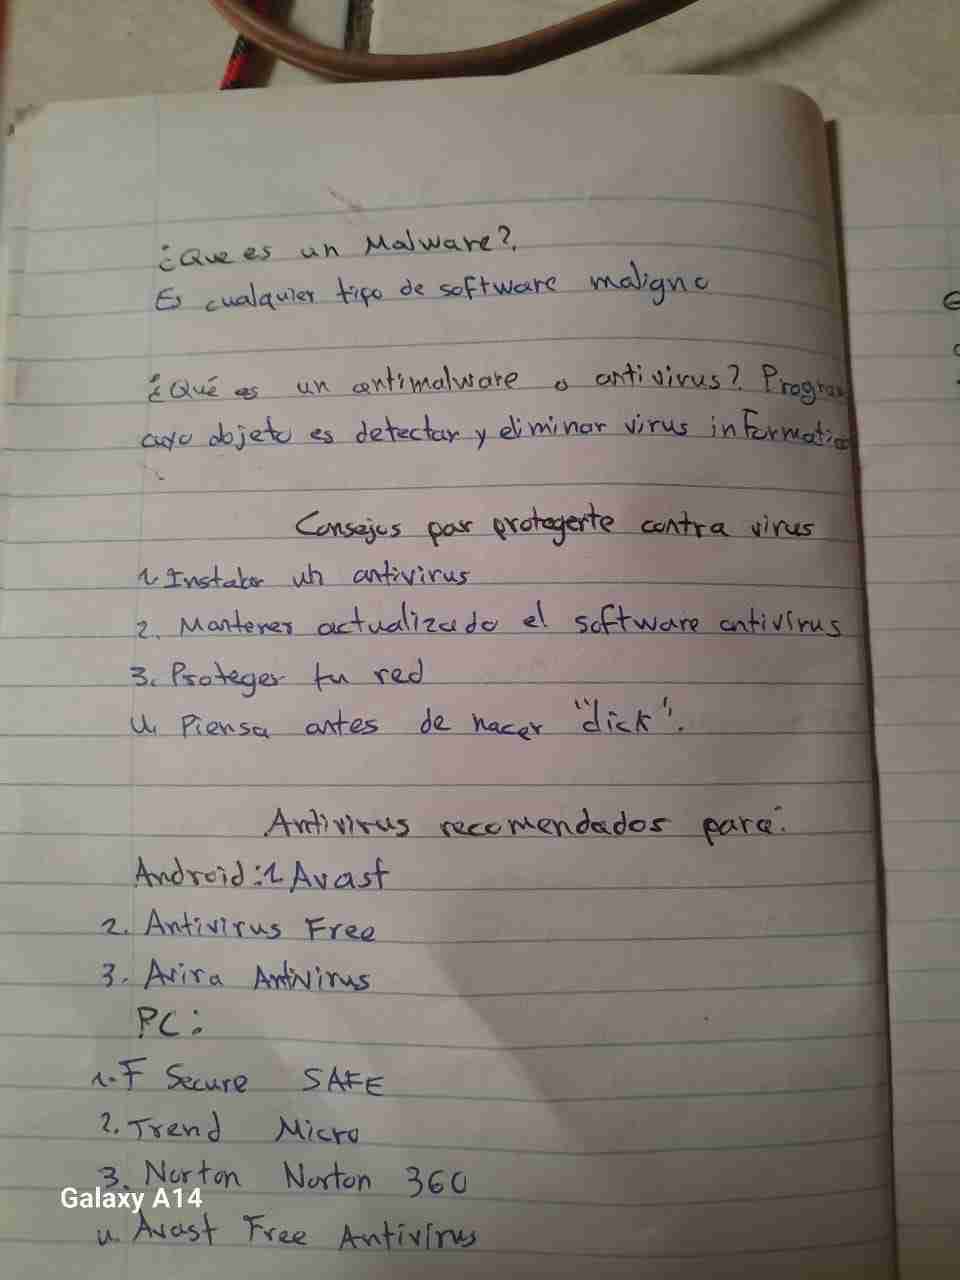 ¿Que es un Malware?.
Es cualquier tipo de software maligno
¿Qué es un antimalware o antivirus? Program
cuyo objeto es detectar y eliminar virus informatico
Consejos par protegerte contra virus
1. Instalar un antivirus
2. Mantener actualizado el software antivirus
3. Proteger tu red
4. Piensa antes de hacer "click".
Antivirus recomendados para:
Android: 1 Avast
2. Antivirus Free
3. Avira Antivirus
PC:
1. F Secure SAFE
2. Trend Micro
3. Norton Norton 360
4. Avast Free Antivirus
Galaxy A14